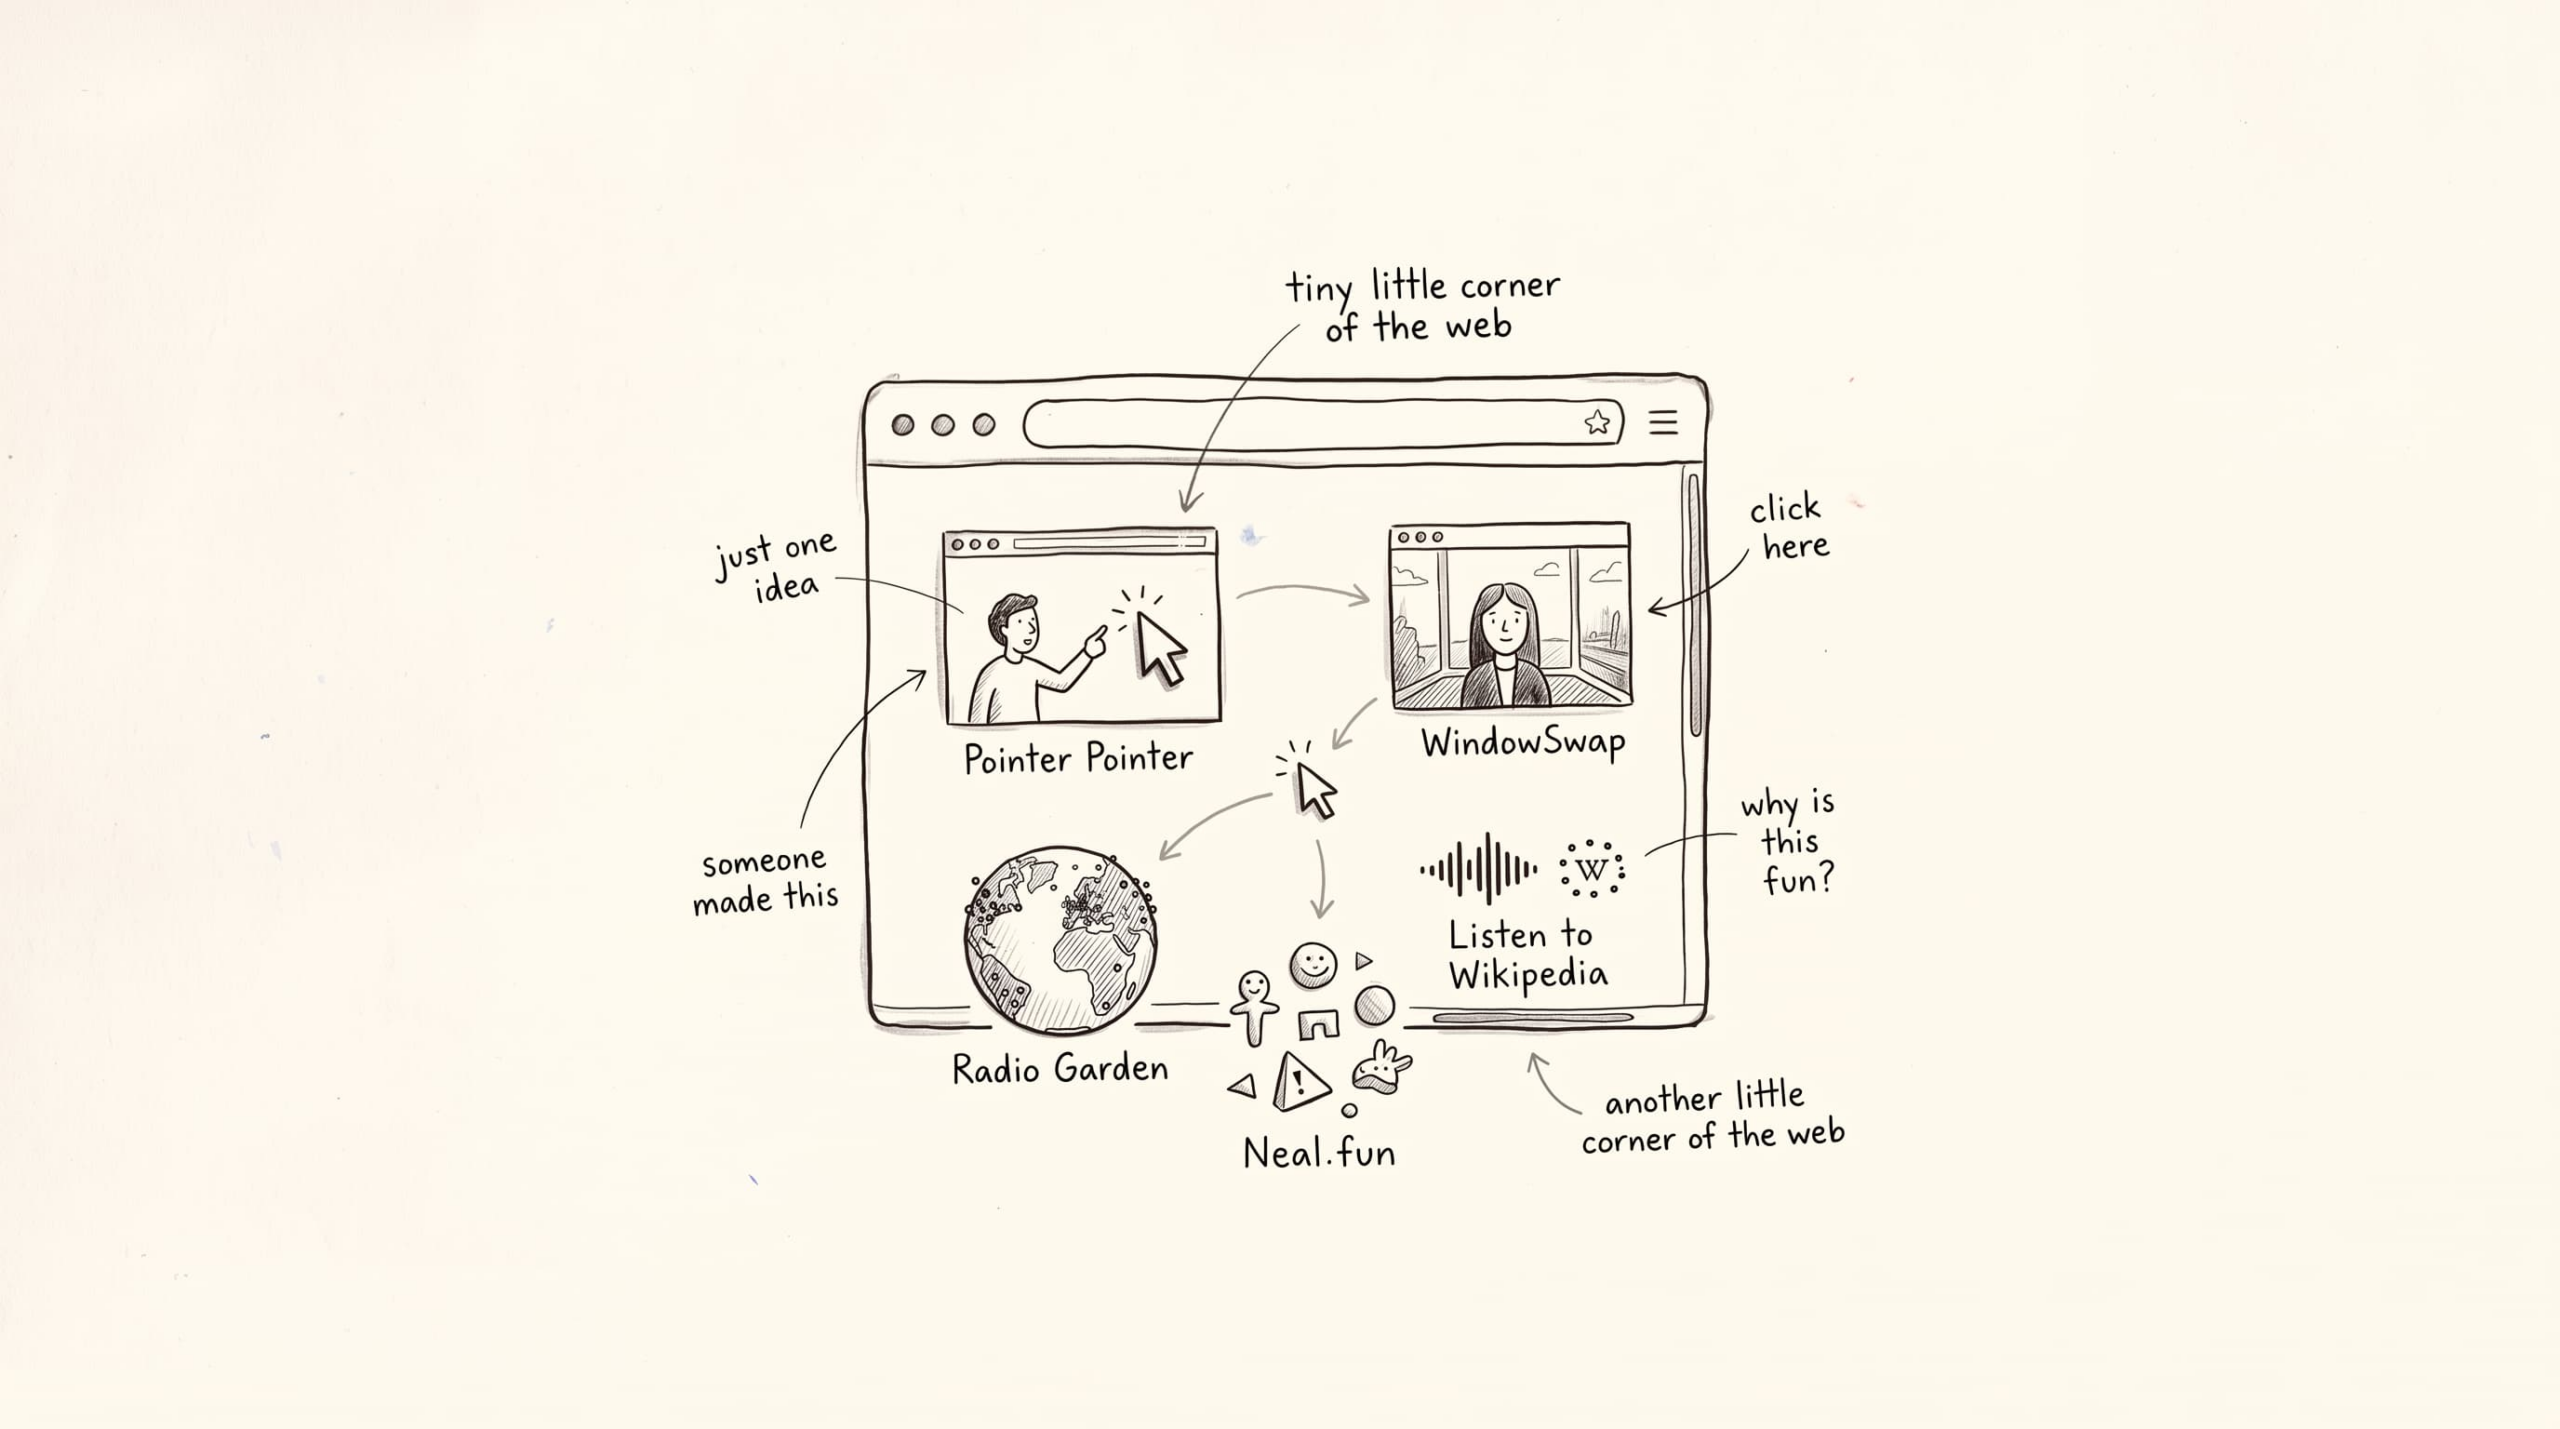 tiny little corner
of the web
just one
idea
click
here
Pointer Pointer
WindowSwap
someone
made this
why is
this
fun?
W
Listen to
Wikipedia
Radio Garden
!
Neal.fun
another little
corner of the web